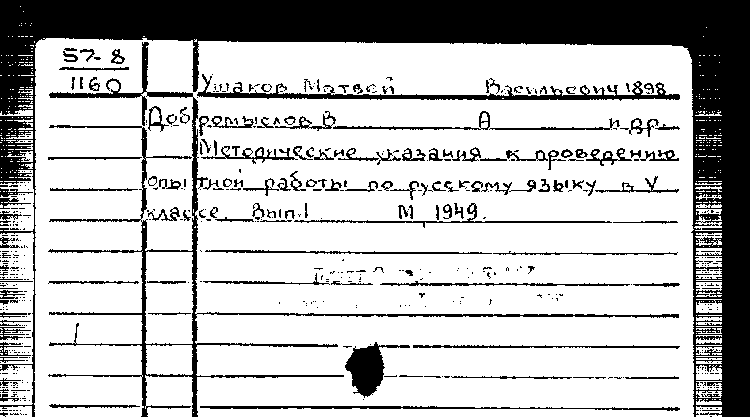 57-8
1160
Ушаков Матвей Васильевич, 1898
Добромыслов В А и др.
Методические указания к проведению
опытной работы по русскому языку в V
классе. Вып.1 М, 1949.